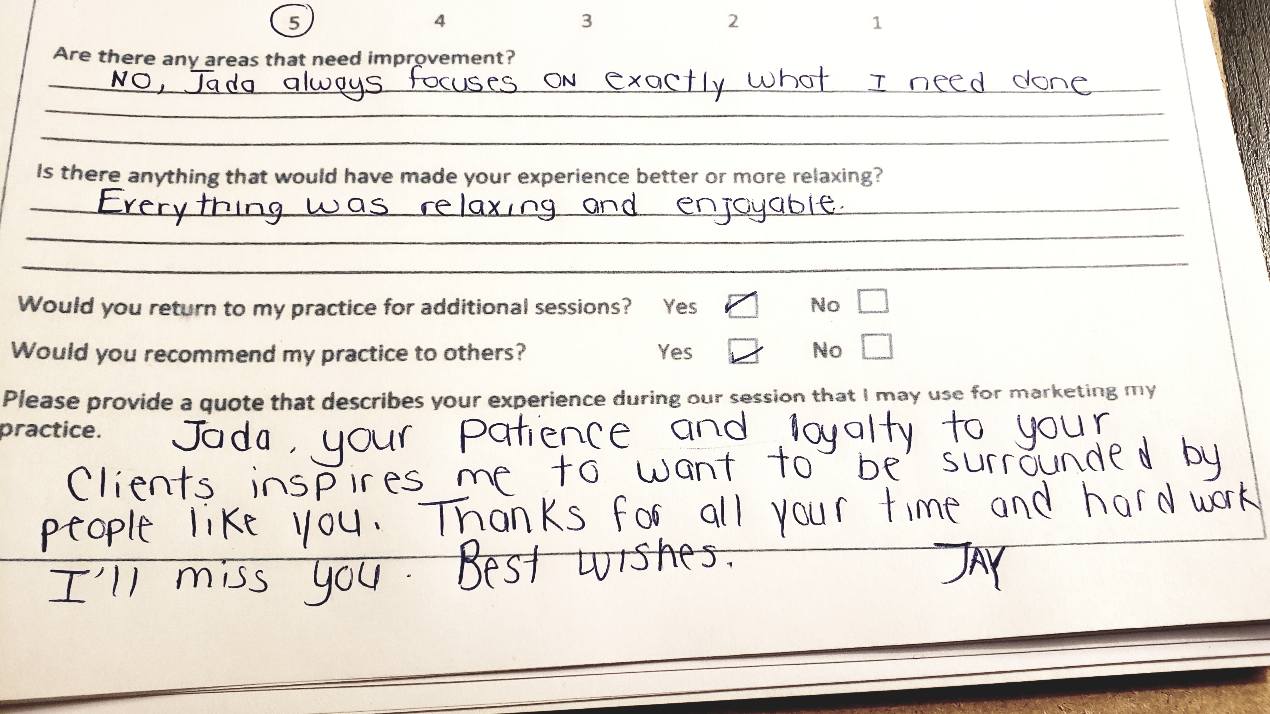 5 4 3 2 1
Are there any areas that need improvement?
NO, Jada always focuses ON exactly what I need done
Is there anything that would have made your experience better or more relaxing?
Everything was relaxing and enjoyable.
Would you return to my practice for additional sessions? Yes No
Would you recommend my practice to others? Yes No
Please provide a quote that describes your experience during our session that I may use for marketing my
practice. Jada, your patience and loyalty to your
Clients inspires me to want to be surrounded by
people like you. Thanks for all your time and hard work
I'll miss you. Best wishes. JAY